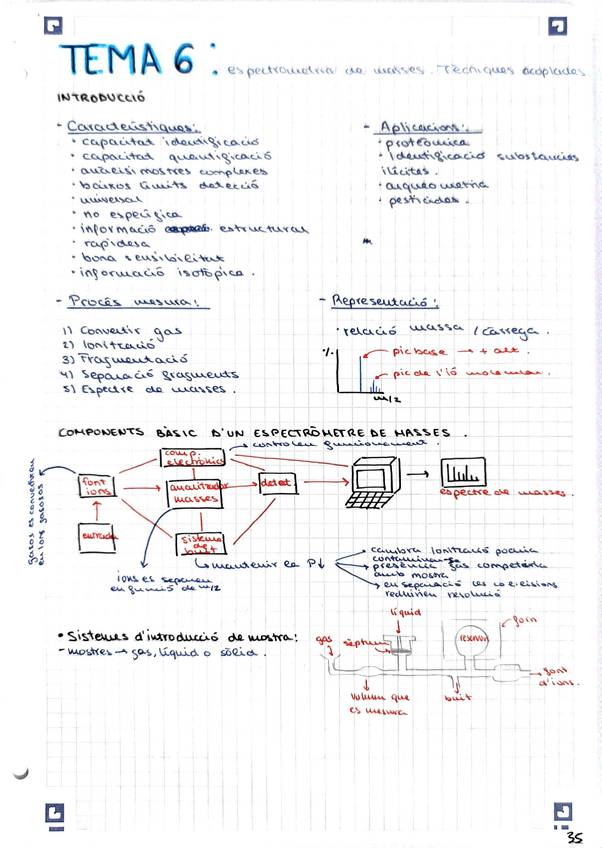 TEMA 6: espectrometria de masses. Tècniques acoplades
INTRODUCCIÓ
- Característiques:
· capacitat identificació
· capacitat quantificació
· anàlisi mostres complexes
· baixos límits detecció
· universal
· no específica
· informació estructural
· rapidesa
· bona sensibilitat
· informació isotòpica.
- Aplicacions:
· proteòmica
· Identificació substàncies
ilícites.
· arqueometria
· pesticides.
- Procés mesura:
1) Convertir gas
2) Ionització
3) Fragmentació
4) Separació fragments
5) Espectre de masses.
- Representació:
· relació massa / càrrega.
%
pic base → + alt.
pic de l'ió molecular.
m/z
COMPONENTS BÀSIC D'UN ESPECTRÒMETRE DE MASSES.
→ controlen funcionament.
comp. electrònics
gasos es converteixen
en ions gasosos
font
ions
analitzador
masses
detect
entrada
sistema
de
buit
espectre de masses.
ions es separen
en funció de m/z
→ mantenir la P↓
→ cambra ionització podria
contaminar-se
→ presència gas competiria
amb mostra
→ en separació les col·lisions
reduirien resolució
• Sistemes d'introducció de mostra:
- mostres → gas, líquid o sòlid.
líquid
gas
sèptum
reservori
forn
font
d'ions.
volum que
es mesura
buit
35